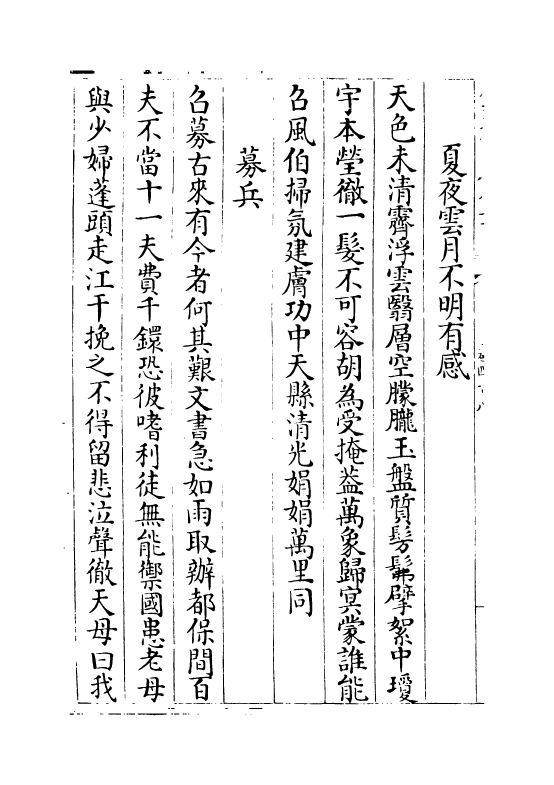 夏夜雲月不明有感
天色未清霽浮雲翳層空朦朧玉盤質髣髴擘絮中瓊
宇本瑩徹一髮不可容胡為受掩葢萬象歸冥蒙誰能
召風伯掃氛建膚功中天縣清光娟娟萬里同
募兵
召募古來有今者何其艱文書急如雨取辦都保間百
夫不當十一夫費千鐶恐彼嗜利徒無能禦國患老母
與少婦蓬頭走江干挽之不得留悲泣聲徹天母曰我